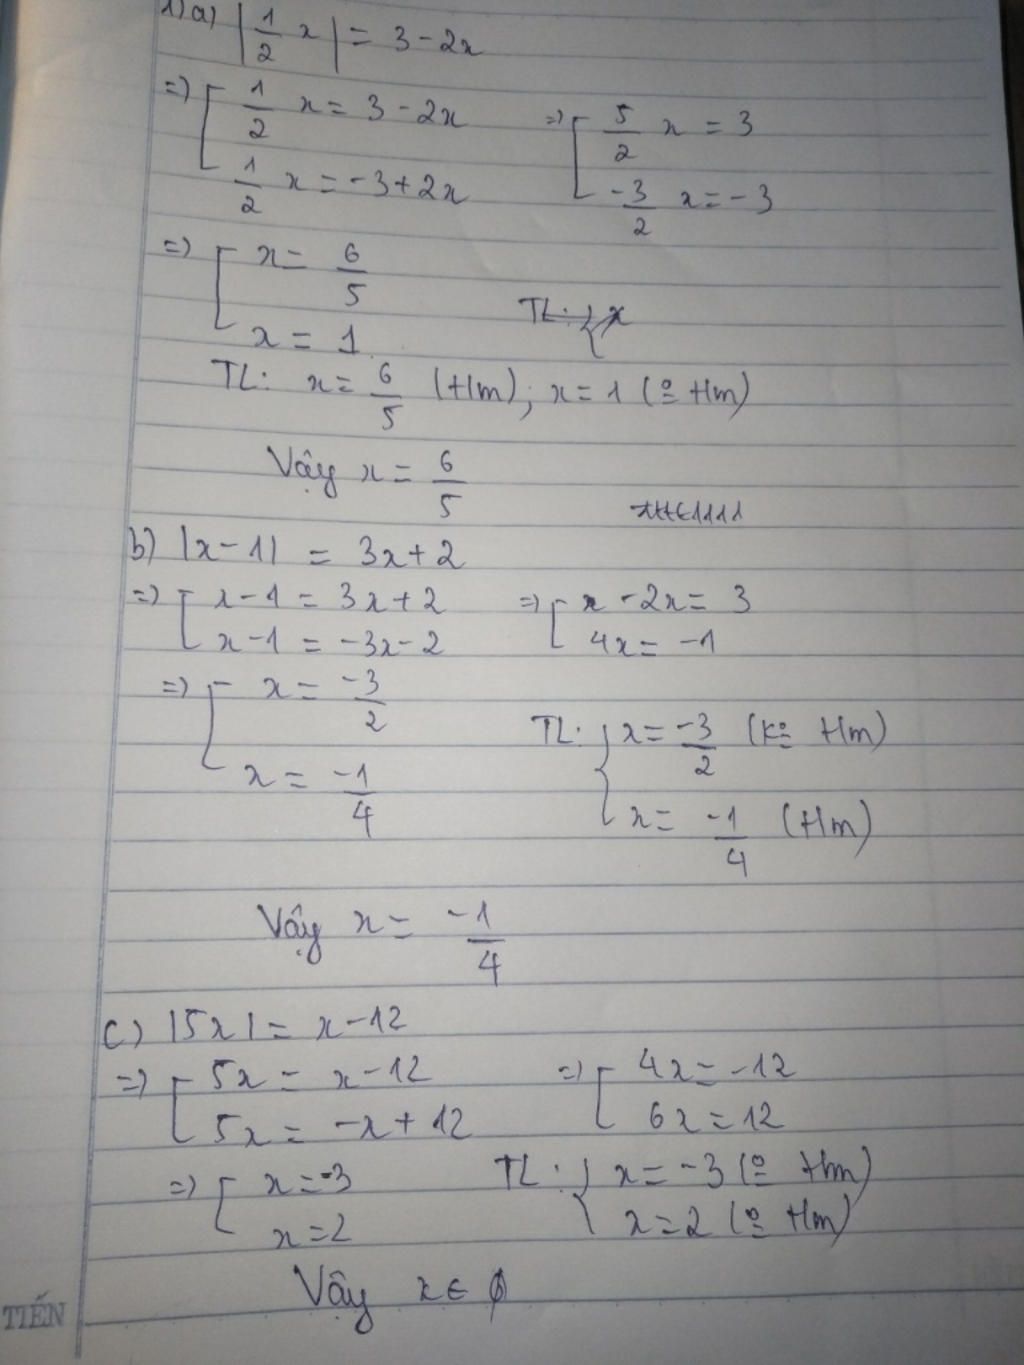 1) a) |1/2 x| = 3 - 2x
=> [ 1/2 x = 3 - 2x => [ 5/2 x = 3
1/2 x = -3 + 2x -3/2 x = -3
=> [ x = 6/5
x = 1
TL: { x
TL: x = 6/5 (t/m); x = 1 (o t/m)
Vậy x = 6/5
b) |x - 1| = 3x + 2
=> [ x - 1 = 3x + 2 => [ x - 2x = 3
x - 1 = -3x - 2 4x = -1
=> [ x = -3/2
x = -1/4
TL: { x = -3/2 (ko t/m)
x = -1/4 (t/m)
Vậy x = -1/4
c) |5x| = x - 12
=> [ 5x = x - 12 => [ 4x = -12
5x = -x + 12 6x = 12
=> [ x = -3 TL: { x = -3 (o t/m)
x = 2 x = 2 (o t/m)
Vậy x ∈ ∅
TIẾN